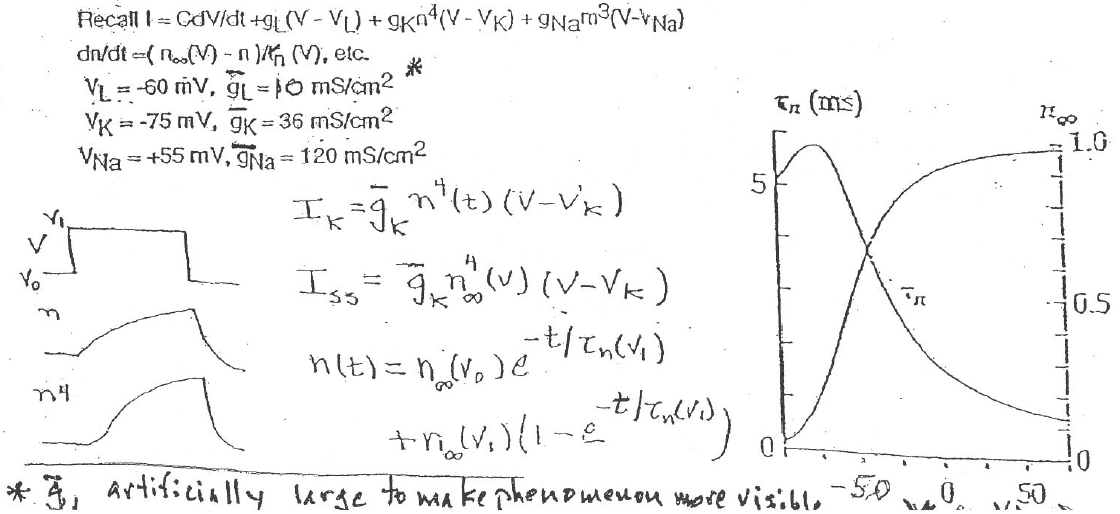 Recall I = CdV/dt +gL(V - VL) + gKn⁴(V - VK) + gNam³(V-VNa)
dn/dt =( n∞(V) - n )/τn (V), etc.
VL = -60 mV, ḡL = 10 mS/cm² *
VK = -75 mV, ḡK = 36 mS/cm²
VNa = +55 mV, ḡNa = 120 mS/cm²
IK = ḡK n⁴(t) (V-VK)
Iss = ḡK n∞⁴(V) (V-VK)
n(t) = n∞(V₀) e^-t/τn(V₁)
+ n∞(V₁)(1 - e^-t/τn(V₁))
V₁
V
V₀
n
n⁴
τn (ms)
n∞
1.0
5
0.5
τn
0
0
-50
0
50
* ḡL artificially large to make phenomenon more visible